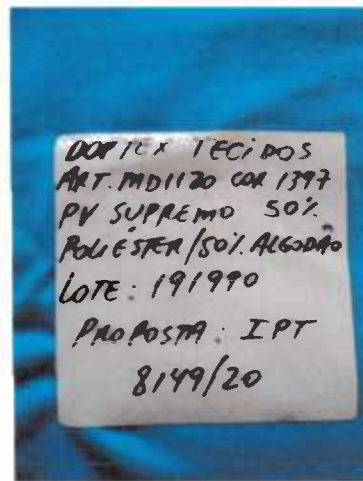 TECIDOS
ART. MD1120 COR 1397
PV SUPREMO 50%
POLIÉSTER/50% ALGODÃO
LOTE: 191990
PROPOSTA: IPT
8149/20